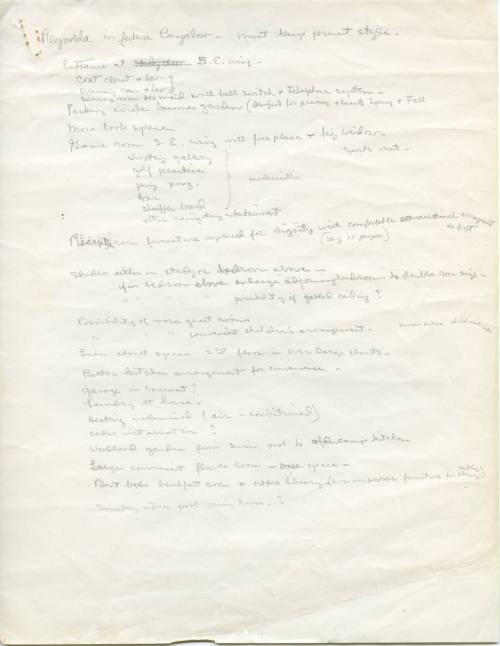 Reynolda in future Bungalow - must keep present style.
Entrance at S.E. wing -
Coat closet & lav
Dressing room & lav
Sewing room for maid with bell switch & telephone system -
Parking circle becomes garden (designed for evening & bank Spring & Fall
More book space
Game room S.E. wing with fire place & big window -
shooting gallery
golf practice
ping pong.
bar
shuffle board
other rainy day entertainment
room furniture replaced for dignity with comfortable conversational arrangement
(say 10 people)
Studio either in study or bedroom above -
if in bedroom above enlarge adjoining bedroom to double room size -
" " " possibility of gabled ceiling?
Possibility of more guest rooms
" " " convenient children's arrangement.
closet space 2nd floor in over large closets.
Better kitchen arrangement for convenience -
Garage in basement?
Laundry at house -
Heating (air-conditioned)
radio installation?
Woodland garden from Swim pool to kitchen
Large convenient flower room - vase space -
breakfast room & library (more comfortable furniture for
Someday indoor pool house - ?